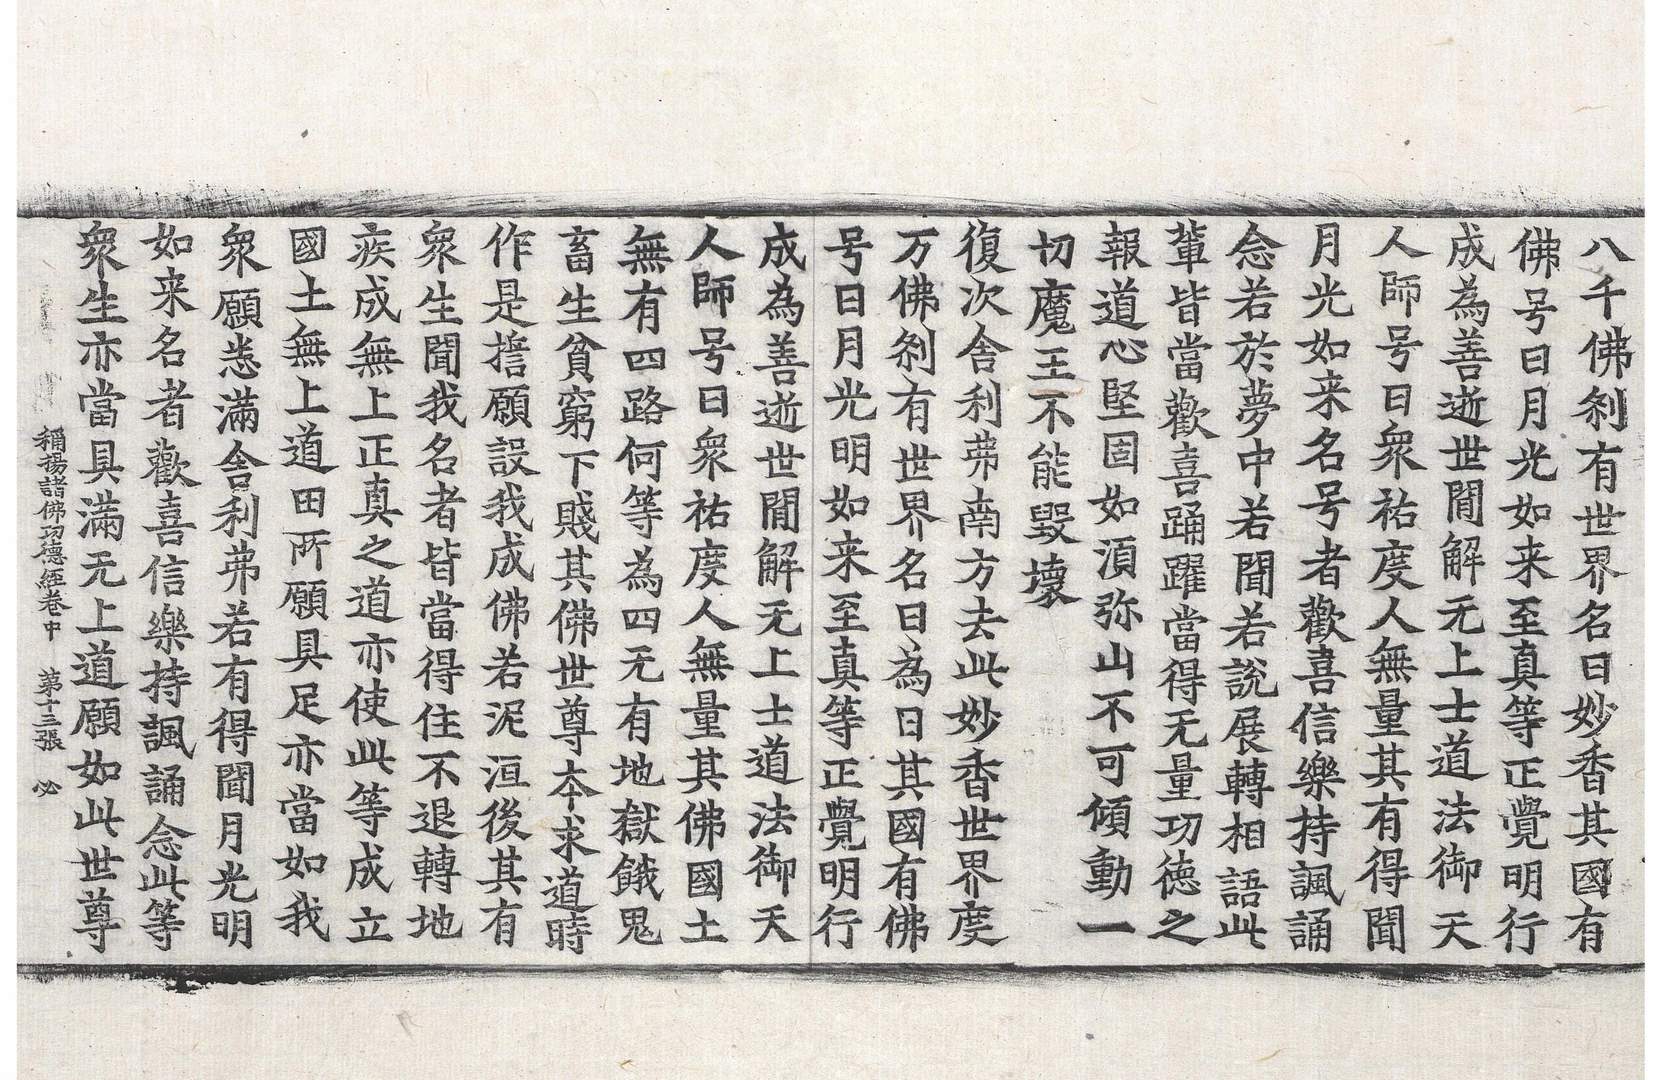 八千佛剎有世界名曰妙香其國有
佛号曰月光如来至真等正覺明行
成為善逝世間解无上士道法御天
人師号曰衆祐度人無量其有得聞
月光如来名号者歡喜信樂持諷誦
念若於夢中若聞若說展轉相語此
輩皆當歡喜踊躍當得无量功徳之
報道心堅固如須弥山不可傾動一
切魔王不能毀壞
復次舍利弗南方去此妙香世界度
万佛剎有世界名曰為日其國有佛
号曰月光明如来至真等正覺明行
成為善逝世間解无上士道法御天
人師号曰衆祐度人無量其佛國土
無有四路何等為四无有地獄餓鬼
畜生貧窮下賤其佛世尊本求道時
作是擔願設我成佛若泥洹後其有
衆生聞我名者皆當得住不退轉地
疾成無上正真之道亦使此等成立
國土無上道田所願具足亦當如我
衆願悉滿舍利弗若有得聞月光明
如来名者歡喜信樂持諷誦念此等
衆生亦當具滿无上道願如此世尊
稱揚諸佛功德經卷中 第十三張 必